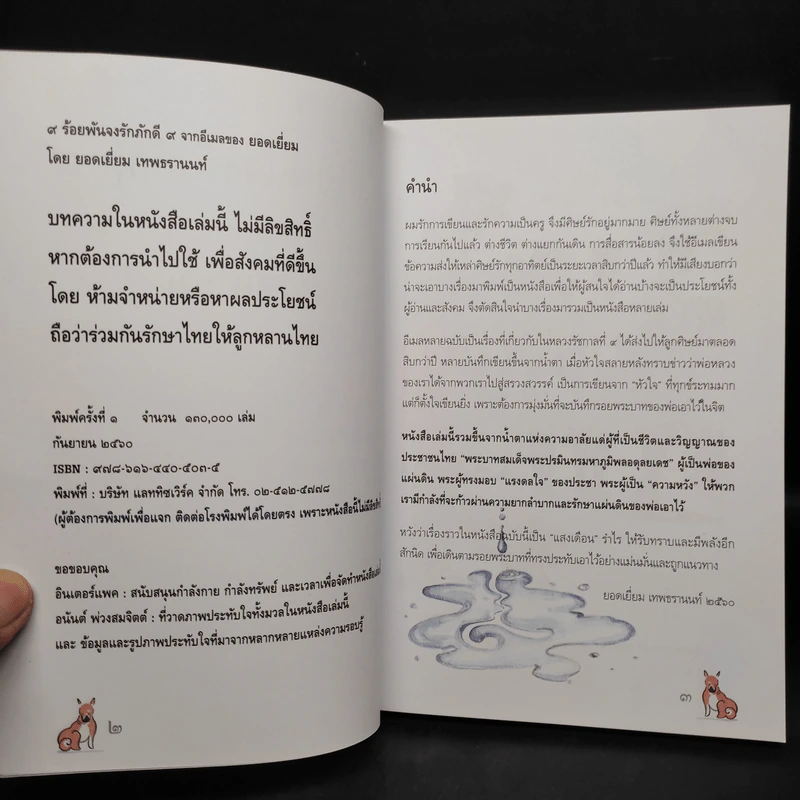 ๙ ร้อยพันจงรักภักดี ๙ จากอีเมลของ ยอดเยี่ยม
โดย ยอดเยี่ยม เทพธรานนท์
บทความในหนังสือเล่มนี้ ไม่มีลิขสิทธิ์
หากต้องการนำไปใช้ เพื่อสังคมที่ดีขึ้น
โดย ห้ามจำหน่ายหรือหาผลประโยชน์
ถือว่าร่วมกันรักษาไทยให้ลูกหลานไทย
พิมพ์ครั้งที่ ๑ จำนวน ๑๓๐,๐๐๐ เล่ม
กันยายน ๒๕๖๐
ISBN : ๙๗๘-๖๑๖-๔๔๐-๕๐๓-๕
พิมพ์ที่ : บริษัท แลททิซเวิร์ค จำกัด โทร. ๐๒-๔๑๒-๕๗๗๘
(ผู้ต้องการพิมพ์เพื่อแจก ติดต่อโรงพิมพ์ได้โดยตรง เพราะหนังสือนี้ไม่มีลิขสิทธิ์
ขอขอบคุณ
อินเตอร์แพค : สนับสนุนกำลังกาย กำลังทรัพย์ และเวลาเพื่อจัดทำหนังสือเล่มนี้
อนันต์ พ่วงสมจิตต์ : ที่วาดภาพประทับใจทั้งมวลในหนังสือเล่มนี้
และ ข้อมูลและรูปภาพประทับใจที่มาจากหลากหลายแหล่งความรอบรู้
๒
คำนำ
ผมรักการเขียนและรักความเป็นครู จึงมีศิษย์รักอยู่มากมาย ศิษย์ทั้งหลายต่างจบ
การเรียนกันไปแล้ว ต่างชีวิต ต่างแยกกันเดิน การสื่อสารน้อยลง จึงใช้อีเมลเขียน
ข้อความส่งให้เหล่าศิษย์รักทุกอาทิตย์เป็นระยะเวลาสิบกว่าปีแล้ว ทำให้มีเสียงบอกว่า
น่าจะเอาบางเรื่องมาพิมพ์เป็นหนังสือเพื่อให้ผู้สนใจได้อ่านบ้างจะเป็นประโยชน์ทั้ง
ผู้อ่านและสังคม จึงตัดสินใจนำบางเรื่องมารวมเป็นหนังสือหลายเล่ม
อีเมลหลายฉบับเป็นเรื่องที่เกี่ยวกับในหลวงรัชกาลที่ ๙ ได้ส่งไปให้ลูกศิษย์มาตลอด
สิบกว่าปี หลายบันทึกเขียนขึ้นจากน้ำตา เมื่อหัวใจสลายหลังทราบข่าวว่าพ่อหลวง
ของเราได้จากพวกเราไปสู่สรวงสวรรค์ เป็นการเขียนจาก "หัวใจ" ที่ทุกข์ระทมมาก
แต่ก็ตั้งใจเขียนยิ่ง เพราะต้องการมุ่งมั่นที่จะบันทึกรอยพระบาทของพ่อเอาไว้ในจิต
หนังสือเล่มนี้รวมขึ้นจากน้ำตาแห่งความอาลัยแด่ผู้ที่เป็นชีวิตและวิญญาณของ
ประชาชนไทย "พระบาทสมเด็จพระปรมินทรมหาภูมิพลอดุลยเดช" ผู้เป็นพ่อของ
แผ่นดิน พระผู้ทรงมอบ "แรงดลใจ" ของประชา พระผู้เป็น "ความหวัง" ให้พวก
เรามีกำลังที่จะก้าวผ่านความยากลำบากและรักษาแผ่นดินของพ่อเอาไว้
หวังว่าเรื่องราวในหนังสือฉบับนี้เป็น "แสงเดือน" รำไร ให้รับทราบและมีพลังอีก
สักนิด เพื่อเดินตามรอยพระบาทที่ทรงประทับเอาไว้อย่างแม่นมั่นและถูกแนวทาง
ยอดเยี่ยม เทพธรานนท์ ๒๕๖๐
๓